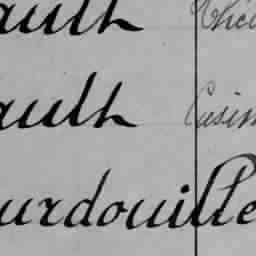 ault
ault Casim
urdouille